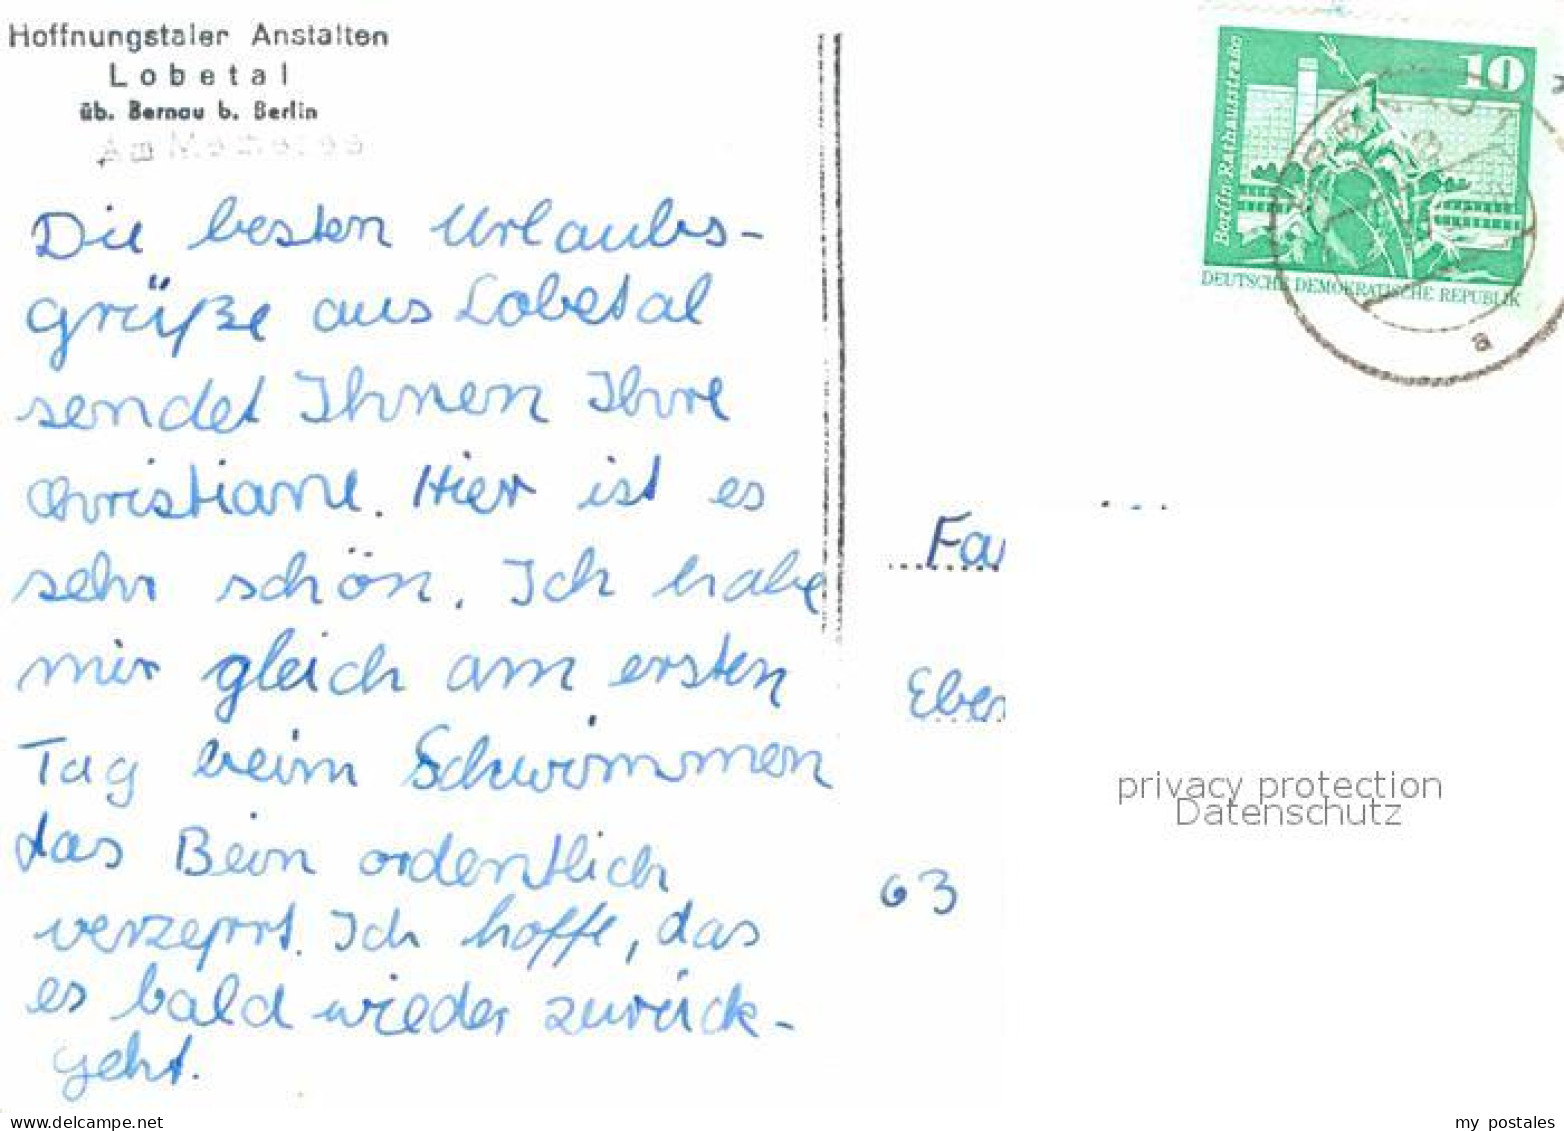 Hoffnungstaler Anstalten
Lobetal
üb. Bernau b. Berlin
Die besten Urlaubs-
grüße aus Lobetal
sendet Ihnen Ihre
Christiane. Hier ist es
sehr schön. Ich habe
mir gleich am ersten
Tag beim Schwimmen
das Bein ordentlich
verzerrt. Ich hoffe, das
es bald wieder zurück-
geht.
10
Berlin-Rathausstraße
DEUTSCHE DEMOKRATISCHE REPUBLIK
a
Fa
Eber
63
privacy protection
Datenschutz
delcampe.net
my_postales